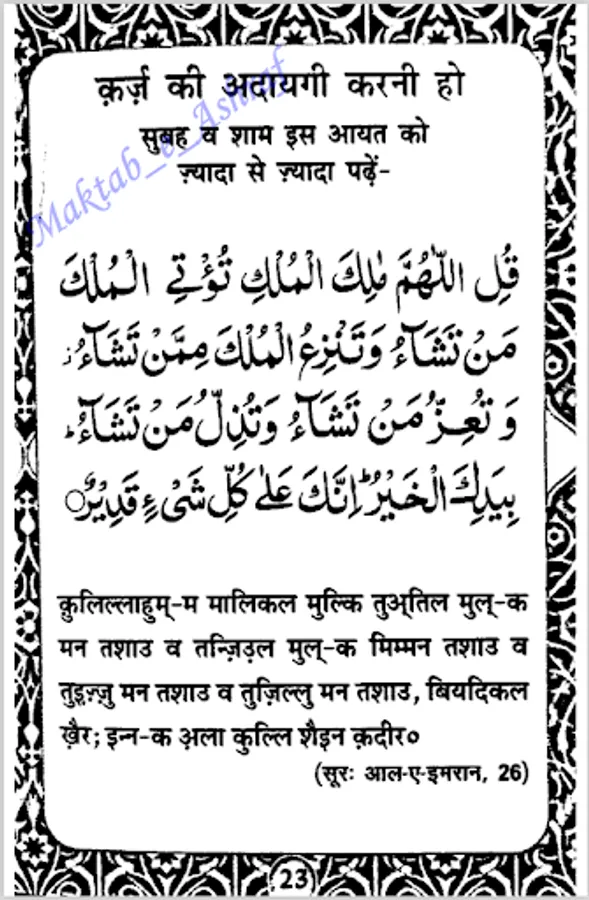 क़र्ज़ की अदायगी करनी हो
सुबह व शाम इस आयत को
ज़्यादा से ज़्यादा पढ़ें-
Maktab_e_Ashraf
قُلِ اللّٰهُمَّ مٰلِكَ الْمُلْكِ تُؤْتِے الْمُلْكَ
مَنْ تَشَآءُ وَتَنْزِعُ الْمُلْكَ مِمَّنْ تَشَآءُ ز
وَ تُعِزُّ مَنْ تَشَآءُ وَتُذِلُّ مَنْ تَشَآءُ ط
بِيَدِكَ الْخَيْرُ ط اِنَّكَ عَلٰے كُلِّ شَیْءٍ قَدِيْرٌ ○
क़ुलिल्लाहुम्-म मालिकल मुल्कि तुअ्तिल मुल्-क
मन तशाउ व तन्ज़िउ़ल मुल्-क मिम्मन तशाउ व
तुइ़ज़्ज़ु मन तशाउ व तुज़िल्लु मन तशाउ, बियदिकल
ख़ैर; इन्न-क अ़ला कुल्लि शैइन क़दीर०
(सूरः आल-ए-इमरान, 26)
23